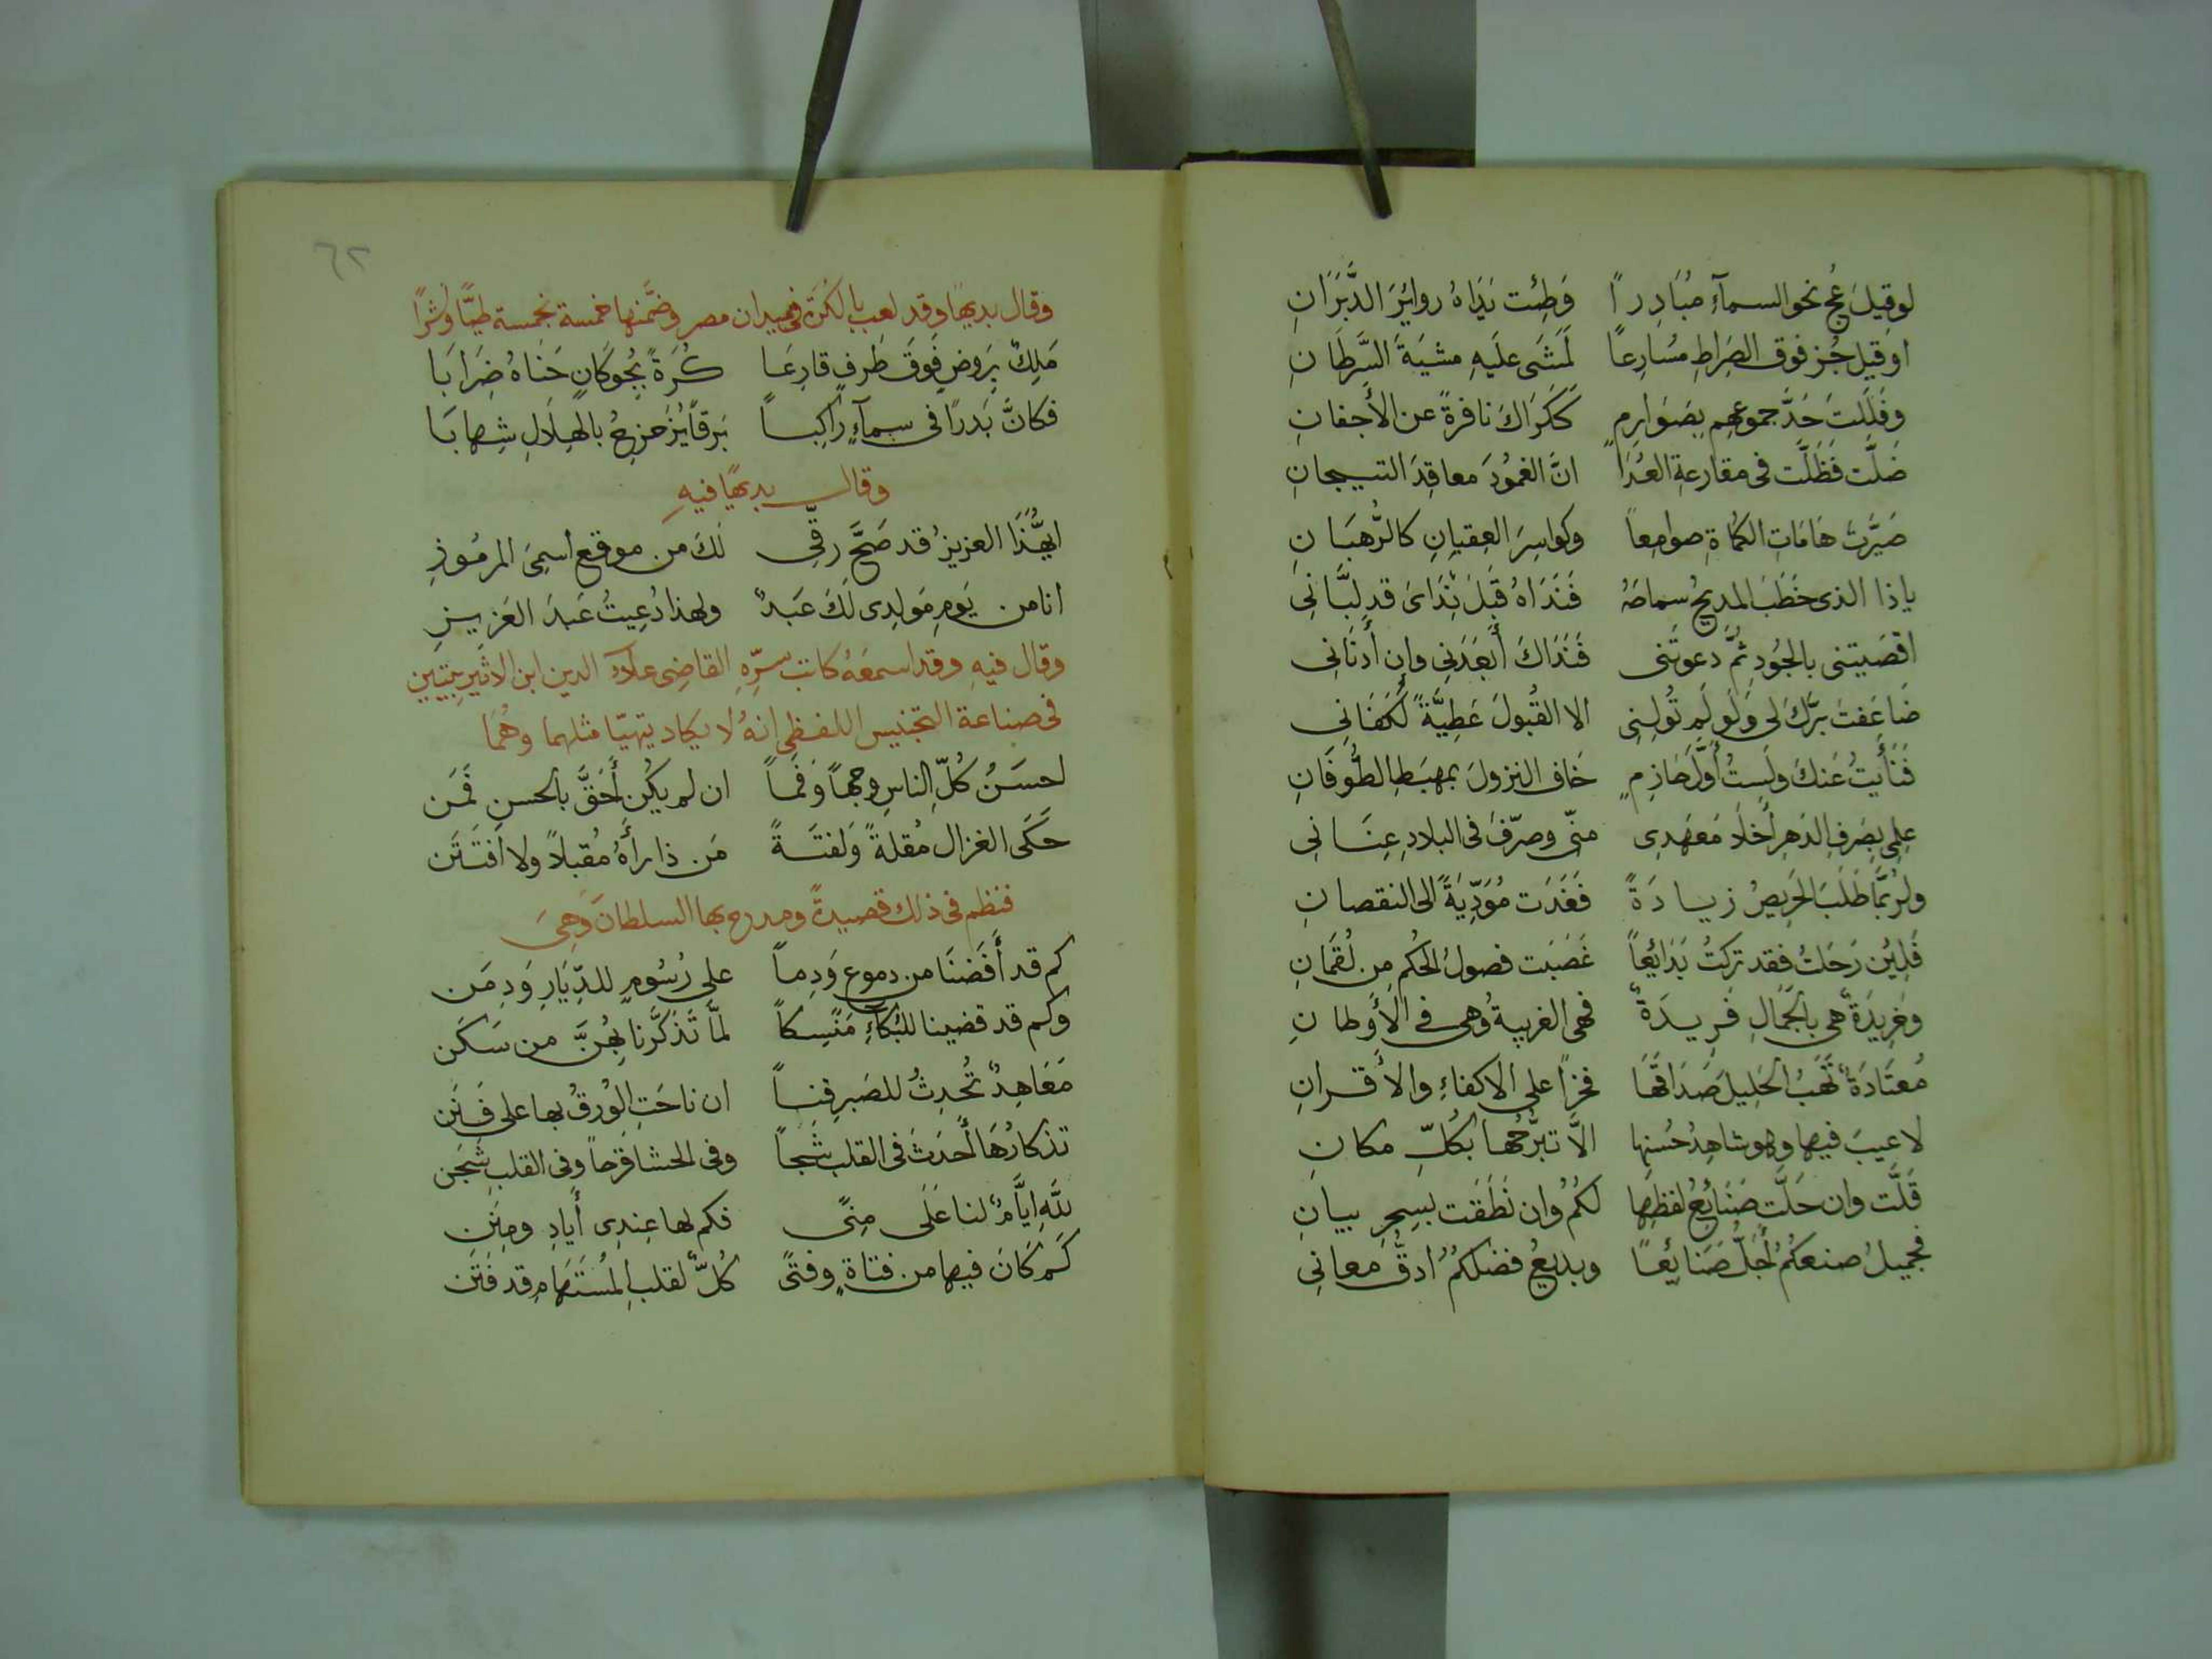 لو قِيلَ عُج نحو السمآءِ مُبَادِراً وَطِئت يَدَاهُ روايَزَ الدَّبَرَانِ
او قيل جُز فوق الصِرَاطِ مُسَارِعاً لَمَشَى علَيهِ مشيَةَ السَّرَطَانِ
وفَلَلتَ حَدَّ جموعهم بِصَوَارِمٍ كَكَرَاكَ نافرةً عن الأجفانِ
ضَلَّت فَظَلَّت فى مقارعةِ العُدَا انَّ الغمُودَ معاقِدَ التسيجانِ
صَيَّرتَ هَامَاتِ الكُمَاةِ صوامِعاً وكواسِرَ العِقيانِ كالرُهبَانِ
ياذا الذى خَطَبَ المديحُ سماحَهُ فَنَدَاهُ قَبلَ نِدَاىَ قد لبَّانِى
اقصَيتنى بالجُودِ ثُمَّ دَعوتَنى فَنَدَاكَ أَبعَدَنِى وإن أَدنَانِى
ضَاعَفتَ بِرَّكَ لى وَلَو لَم تُولِنِى الا القُبولَ عَطِيَّةً لَكَفَانِى
فَنَأَيتُ عَنكَ ولَستُ أَوَّلَ حَازِمٍ خَافَ النزولَ بمهبَطِ الطُّوفَانِ
علِمى بِصَرفِ الدَهرِ أَخلَا مَعهَدِى منّى وصرَّفَ فى البلادِ عِنَانِى
ولرُبَّمَا طَلَبَ الحَرِيصُ زيادَةً فَغَدَت مُؤَدِّيَةً الى النقصانِ
فَلِئِن رَحَلتُ فقد تركتُ بَدَائِعاً غَصَبَت فصولَ الحُكمِ مِن لُقمَانِ
وخَرِيدَةٌ هى بالجَمَالِ فَرِيدَةٌ فهى الغريبةُ وهى فى الأَوطانِ
مُعتَادَةٌ تَهَبُ الخليلَ صَدَاقَهَا فخراً على الاكفاءِ والأقرانِ
لا عيبَ فيها وهو شاهِدُ حُسنِها الَّا تبرُّجُها بكُلِّ مكانِ
قَلَّت وان جَلَّت صَنَائِعُ لفظِهَا لكُمُ وان نَطَقَت بسِحرِ بيانِ
فجميلُ صنعكُمُ أَجَلُّ صَنَايِعاً وبديعُ فضلكُمُ ادقُّ معانِى
٦٢
وقال بديهًا وقد لعب بالكُرَةِ فى ميدان مصر وضَمَّنها خمسة بخمسة طيًّا ونشرًا
مَلِكٌ بِرَوضٍ فَوقَ طَرفٍ قارِعَا كُرَةً بِجُوكَانٍ حَنَاهُ ضِرَابَا
فكانَّ بَدرًا فى سمآءٍ رَاكباً بَرقاً يُزَحزِحُ بالهِلَالِ شِهابَا
وقال بديهًا فيهِ
ايُّهَذَا العزيزُ قد صَحَّ رقِّى لكَ من موقع اسمِىَ المرمُوزِ
انا من يَومِ مَولِدِى لَكَ عَبدٌ ولهذا دُعِيتُ عَبدَ العَزيزِ
وقال فيهِ وقد اسمعَهُ كاتب سِرِّهِ القاضِى علآء الدين ابن الاثير بيتين
فى صناعة التجنيس اللفظى انهُ لا يكاد يتهيّا مثلهما وهُمَا
احسَنُ كُلِّ الناسِ وجهاً وَفَماً ان لم يكُن أَحَقَّ بالحسن فَمَن
حَكَى الغزال مُقلةً وَلَفتَةً مَن ذا رأَهُ مُقبلاً ولا افتَتَن
فنظم فى ذلك قصيدةً ومدح بها السلطانَ وَهِىَ
كم قد أَفَضنَا من دموع وَدِماً على رُسُومٍ للدِّيَارِ وَدِمَن
وكم قد قضينا للبُكآءِ مَنسِكاً لمَّا تَذَكَّرنا بِهِنَّ من سَكَن
مَعَاهِدٌ تُحدِثُ للصَبرِ فَناً ان ناحَتِ الوُرقُ بها على فَنَن
تذكارُهَا أَحدَثَ فى القلبِ شجاً وفى الحشا قرَحاً وفى القلبِ شَجَن
للَّهِ ايَّامٌ لنا عَلَى مِنًى فكم لها عِندِى أَيادِ ومِنَن
كم كَانَ فيها من فتاةٍ وفتًى كُلٌّ لقلبِ المُستَهَامِ قد فَتَن